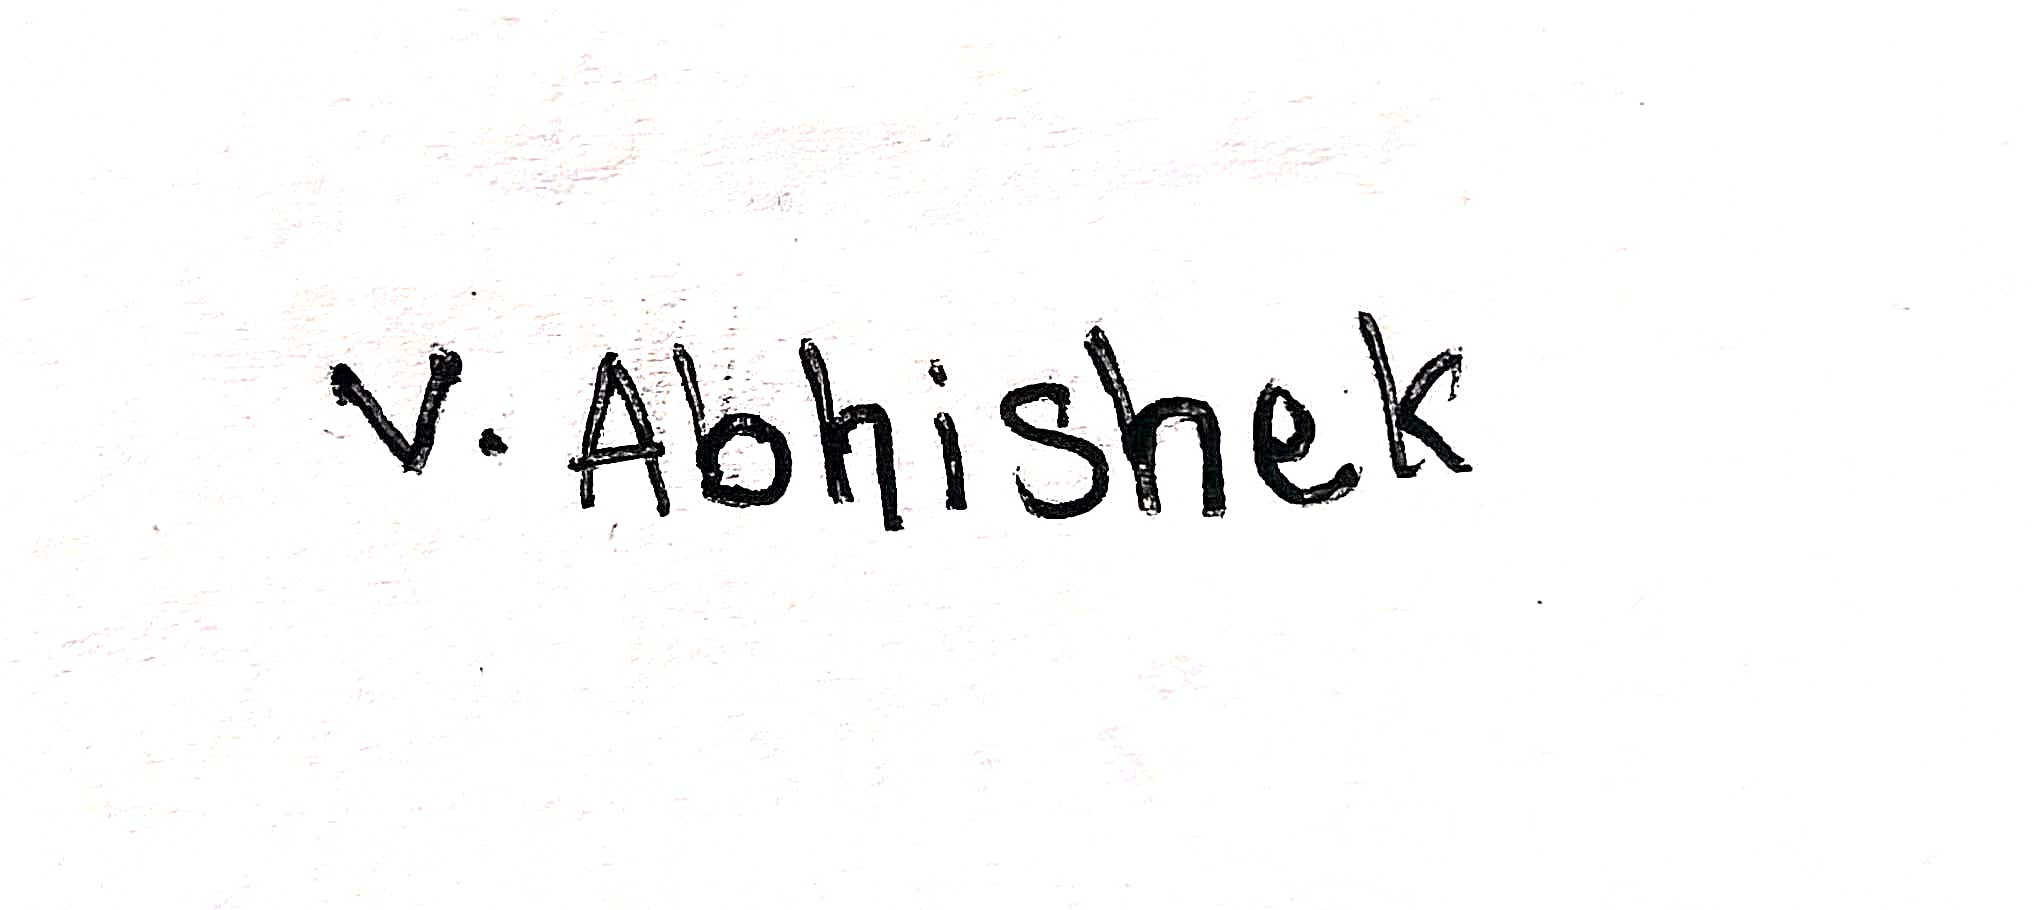 V. Abhishek